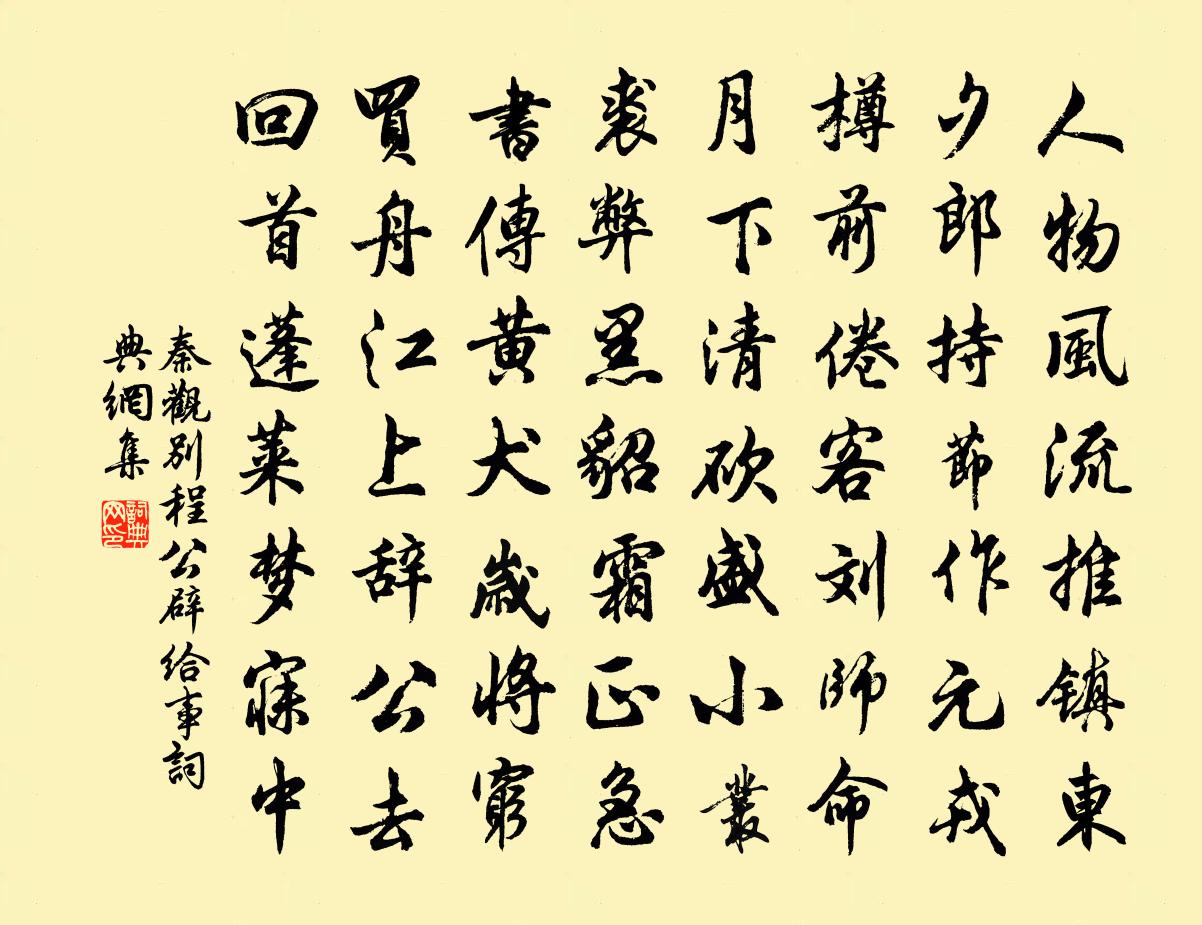 人物風流推镇東
夕郎持節作元戎
樽前倦客刘師命
月下清砍盛小叢
裘弊黑貂霜正急
書傳黄犬歳將窮
買舟江上辞公去
回首蓬莱梦寐中
秦觀别程公辟给事詞
典網集
詞典网印